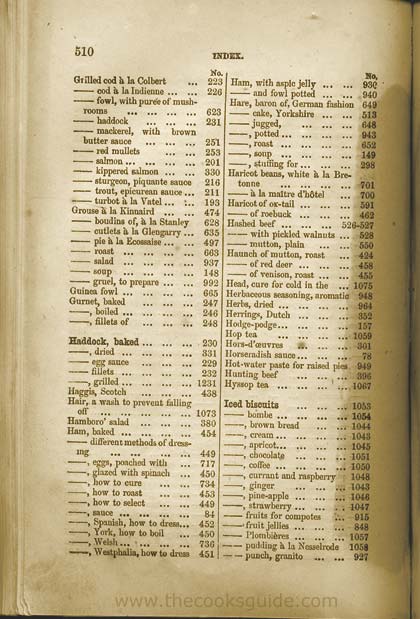 510
INDEX.
No.
Grilled cod à la Colbert ... 223
—— cod à la Indienne ... ... 226
—— fowl, with purée of mush-
rooms ... ... ... ... 623
—— haddock ... ... ... 231
—— mackerel, with brown
butter sauce ... ... ... 251
—— red mullets ... ... 253
—— salmon ... ... ... ... 201
—— kippered salmon ... ... 330
—— sturgeon, piquante sauce 216
—— trout, epicurean sauce ... 211
—— turbot à la Vatel ... ... 193
Grouse à la Kinnaird ... ... 474
—— boudins of, à la Stanley 628
—— cutlets à la Glengarry ... 635
—— pie à la Ecossaise ... ... 497
—— roast ... ... ... ... 663
—— salad ... ... ... ... 937
—— soup ... ... ... ... 148
—— gruel, to prepare ... ... 992
Guinea fowl ... ... ... ... 665
Gurnet, baked ... ... ... 247
——, boiled ... ... ... ... 246
——, fillets of ... ... ... 248
Haddock, baked ... ... ... 230
——, dried ... ... ... ... 331
—— egg sauce ... ... ... 229
—— fillets ... ... ... ... 232
——, grilled ... ... ... ... 1231
Haggis, Scotch ... ... ... 438
Hair, a wash to prevent falling
off ... ... ... ... ... 1073
Hamboro' salad ... ... ... 380
Ham, baked ... ... ... ... 454
—— different methods of dress-
ing ... ... ... ... 449
——, eggs, poached with ... 717
——, glazed with spinach ... 450
——, how to cure ... ... 734
——, how to roast ... ... 453
——, how to select ... ... 449
——, sauce ... ... ... ... 84
——, Spanish, how to dress... 452
——, York, how to boil ... 450
——, Welsh ... ... ... ... 736
——, Westphalia, how to dress 451
No.
Ham, with aspic jelly ... ... 930
—— and fowl potted ... ... 940
Hare, baron of, German fashion 649
—— cake, Yorkshire ... ... 513
—— jugged, ... ... ... 648
——, potted ... ... ... ... 943
——, roast ... ... ... ... 652
——, soup ... ... ... ... 149
——, stuffing for ... ... ... 298
Haricot beans, white à la Bre-
tonne ... ... ... ... 701
—— à la maître d'hôtel ... 700
Haricot of ox-tail ... ... ... 591
—— of roebuck ... ... ... 462
Hashed beef ... ... ... 526-527
—— with pickled walnuts ... 528
—— mutton, plain ... ... 550
Haunch of mutton, roast ... 424
—— of red deer ... ... ... 458
—— of venison, roast ... ... 455
Head, cure for cold in the ... 1075
Herbaceous seasoning, aromatic 948
Herbs, dried ... ... ... ... 964
Herrings, Dutch ... ... ... 352
Hodge-podge ... ... ... ... 157
Hop tea ... ... ... ... 1059
Hors-d'œuvres ... ... ... 301
Horseradish sauce ... ... ... 78
Hot-water paste for raised pies 949
Hunting beef ... ... ... 396
Hyssop tea ... ... ... ... 1067
Iced biscuits ... ... ... 1053
—— bombe ... ... ... ... 1054
——, brown bread ... ... 1044
——, cream ... ... ... ... 1043
——, apricot ... ... ... ... 1045
——, chocolate ... ... ... 1051
——, coffee ... ... ... ... 1050
——, currant and raspberry 1048
——, ginger ... ... ... 1043
——, pine-apple ... ... ... 1046
——, strawberry ... ... ... 1047
—— fruits for compotes ... 915
—— fruit jellies ... ... ... 848
—— Plombières ... ... ... 1057
—— pudding à la Nesselrode 1058
—— punch, granito ... ... 927
www.thecooksguide.com